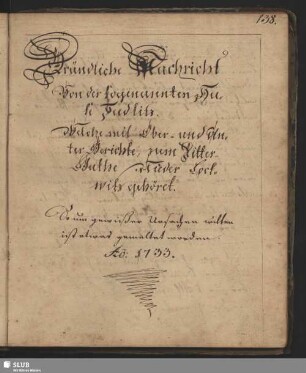 138.
Gründliche Nachricht
Von der sogenannten
Welche mit Ober- und Un,
ter Gerichte, zum Ritter
Guthe Nieder Lock,
witz gehöret.
So um gewißer Ursachen willen
ist etwas gemeldet worden
Ao: 1733.
SLUB